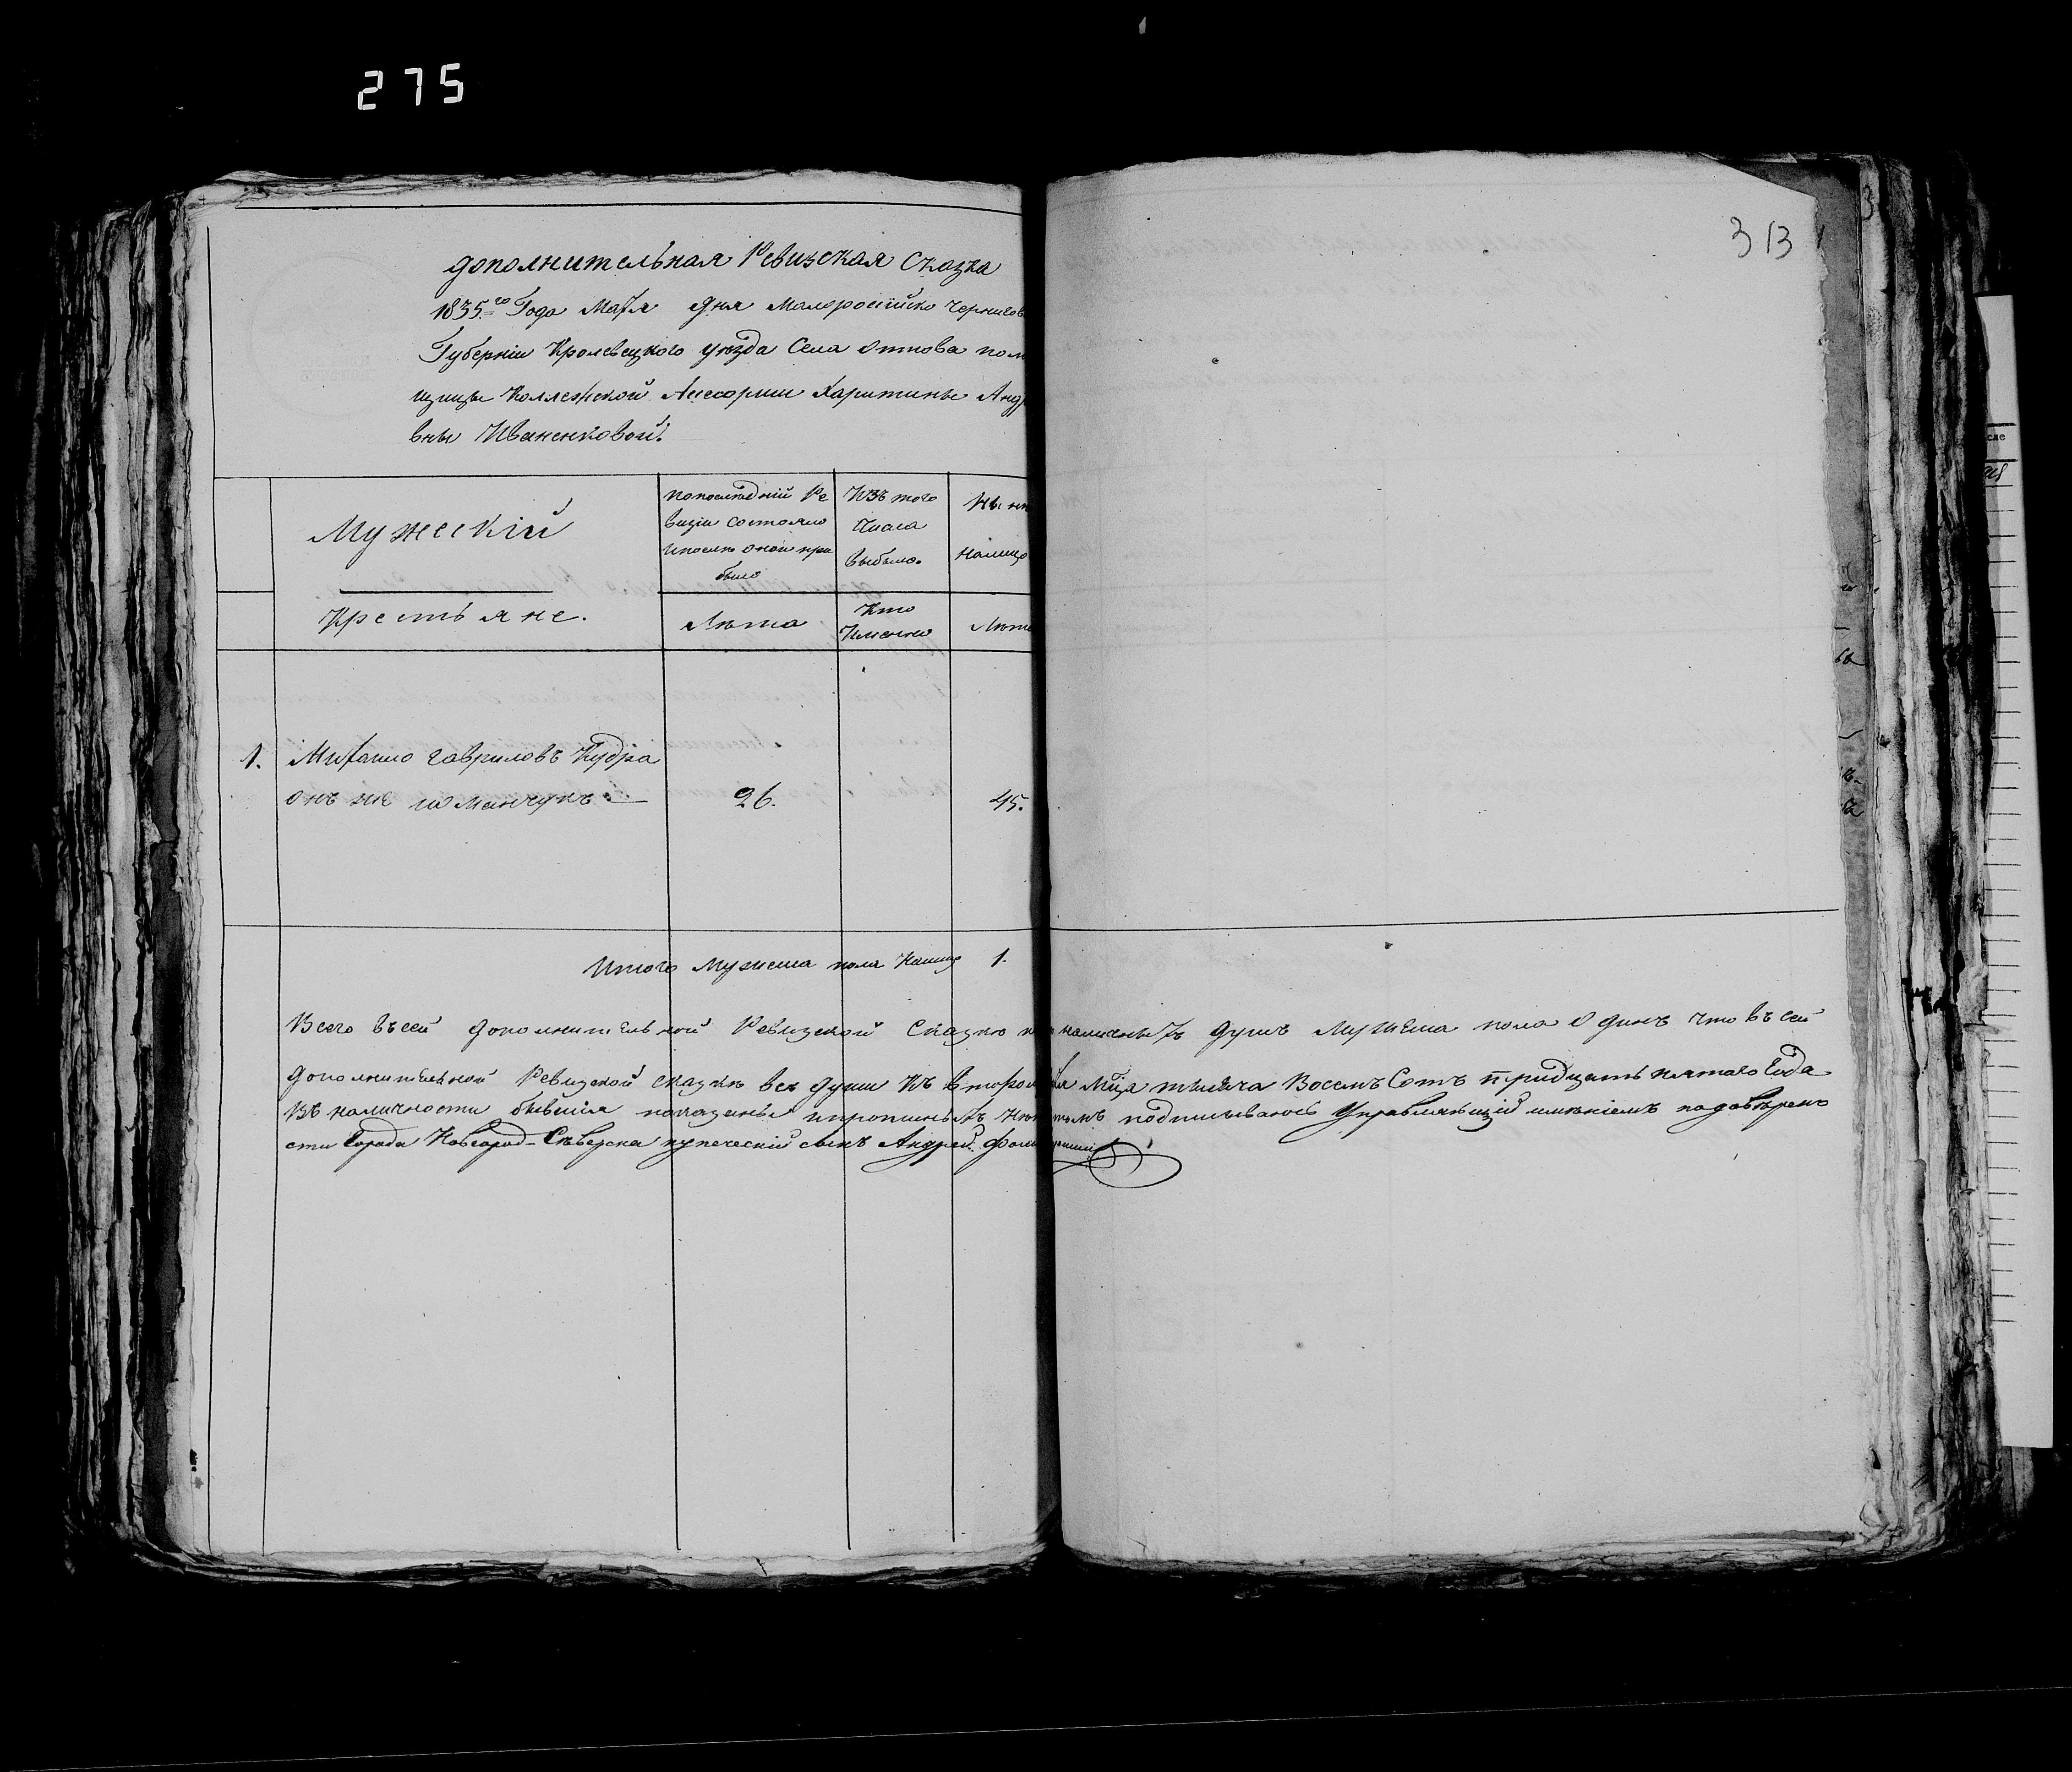 275
313
дополнительная Ревизская Сказка
1835.го Года Маїя дня Малоросийско Чернигов
Губернїи Кролевецкого уѣзда Села помѣ
щицы Коллежской Ассесорши Харитины Андре
вны Иваненковой.
Мужескїй
попослѣдній Ре
визіи состояло
ипослѣ оной при
было
Изъ того
Числа
выбыло.
Ны нѣ
налицо
Крестьяне.
Лѣта
Кто
Именно
Лѣта
1. Михайло Гавриловъ Кудра
онъ же 26. 45.
Итого Мужеска пола Налицо 1.
Всего въсей дополнительной Ревизской Сказкѣ наличныхъ душъ Мужеска пола Одинъ что въ сей
дополнительной Ревизской сказкѣ всѣ души Мца тысяча Восемъ Сотъ тридцать пятаго Года
въ наличности бывшїя показаны ипропиныхъ нѣтъ подписываюсь Управляющїй имѣнїемъ подовѣрено
сти Города Новгород-Сѣверска купеческїй сынъ Андрей
сле